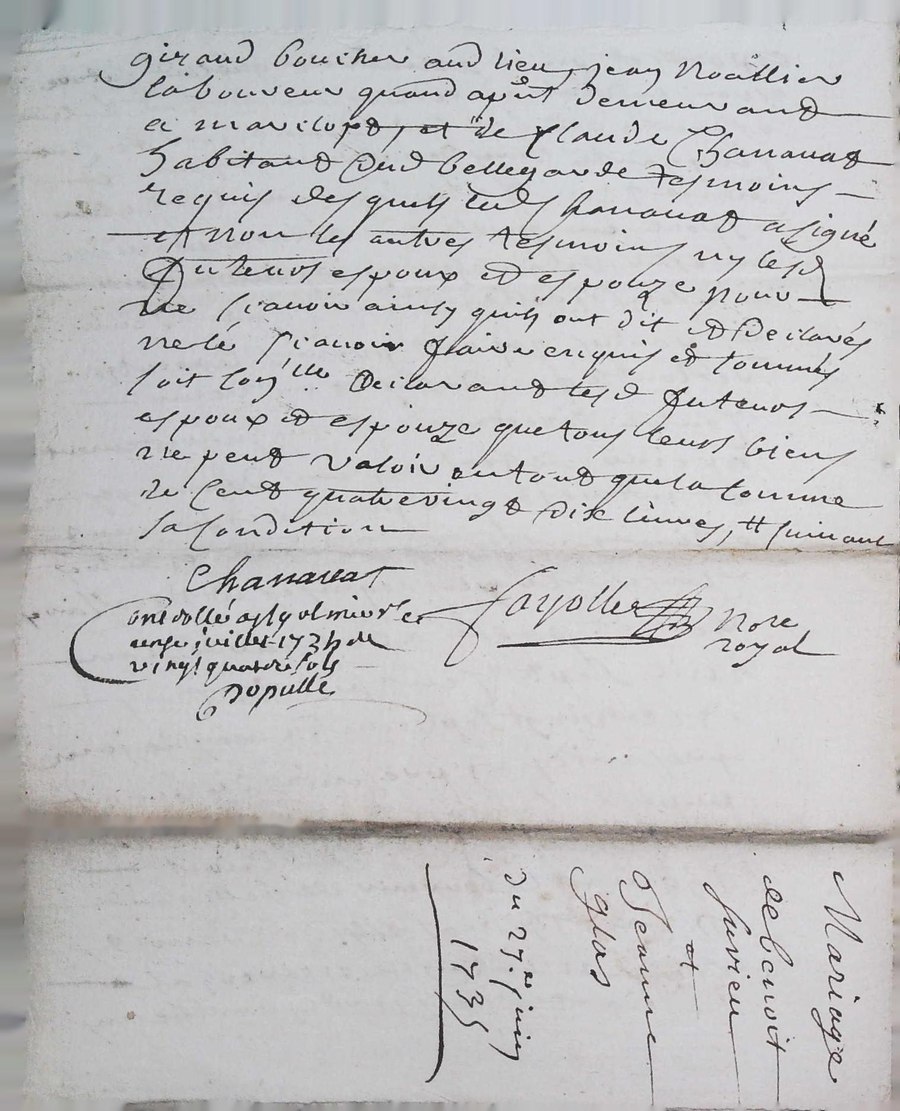 giraud boucher aud lieu, jean Noallier
laboureur quand apñt demeurand
a marclopt, et de Claude Chanauat
habitand dud bellegarde tesmoins
requis desquels led Chanauat a signé
et non les autres tesmoins ny lesd
futeurs espoux et espouze pour
ne scauoir ainsy quils ont dit et declarés
ne lé scauoir faire enquis et sommés
soit con^lle declarand lesd futeurs
espoux et espouze que tous leurs biens
ne peut valoir en tout que la somme
de cent quatrevingt dix liures, suiuant
sa Condition
Chanauat
controllé a st galmier le
unze juillet 1735 de
vingt quatre sols
Populle
Fayolle Nore
royal
Mariage
de benoit
suvieu
et
Jeanne
glas
du 27.e juin
1735